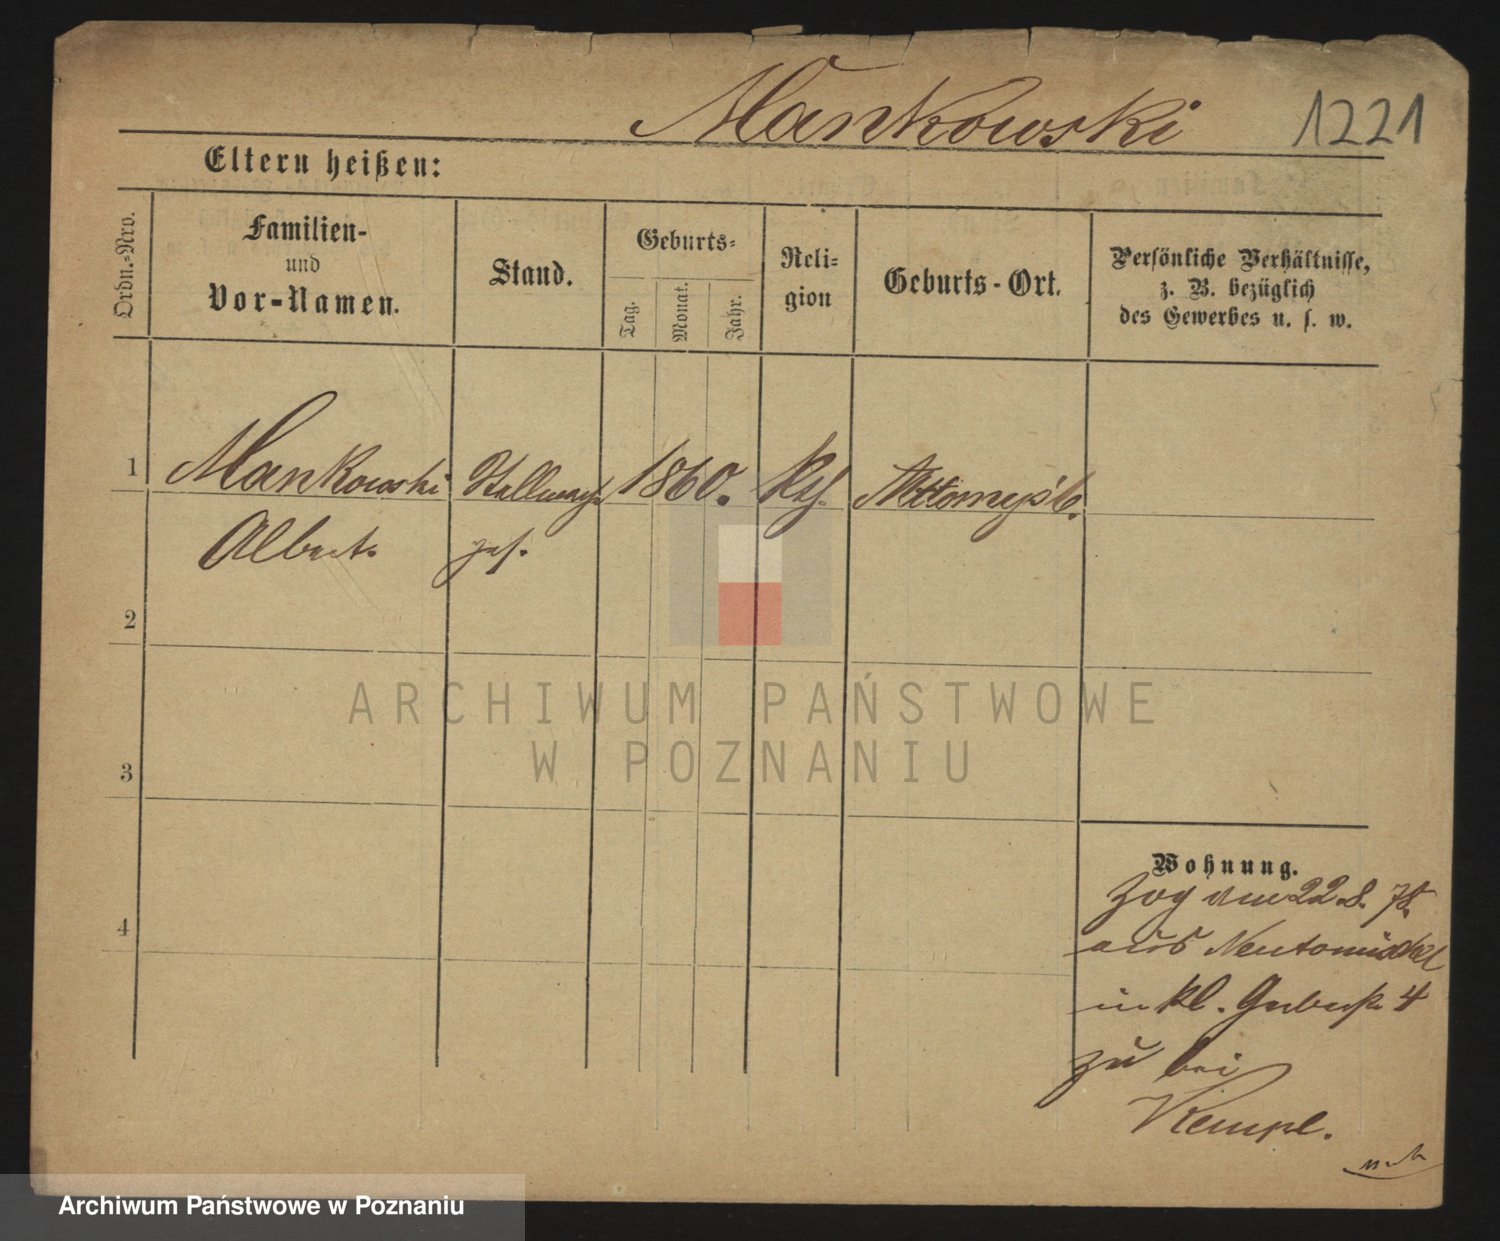 Mankowski 1221
Eltern heißen:
Ordn.-Nro.
Familien-
und
Vor-Namen.
Stand.
Geburts-
Tag.
Monat.
Jahr.
Reli-
gion
Geburts-Ort.
Persönliche Verhältnisse,
z. B. bezüglich
des Gewerbes u. s. w.
1 Mankowski Stellmach 1860. kth.
Albert ges.
2
3
4
Wohnung.
Zog am 22.8. 78.
aus Neutomischel
in kl. Gerberstr. 4
zu bei
Kempf.
ARCHIWUM PAŃSTWOWE
W POZNANIU
Archiwum Państwowe w Poznaniu